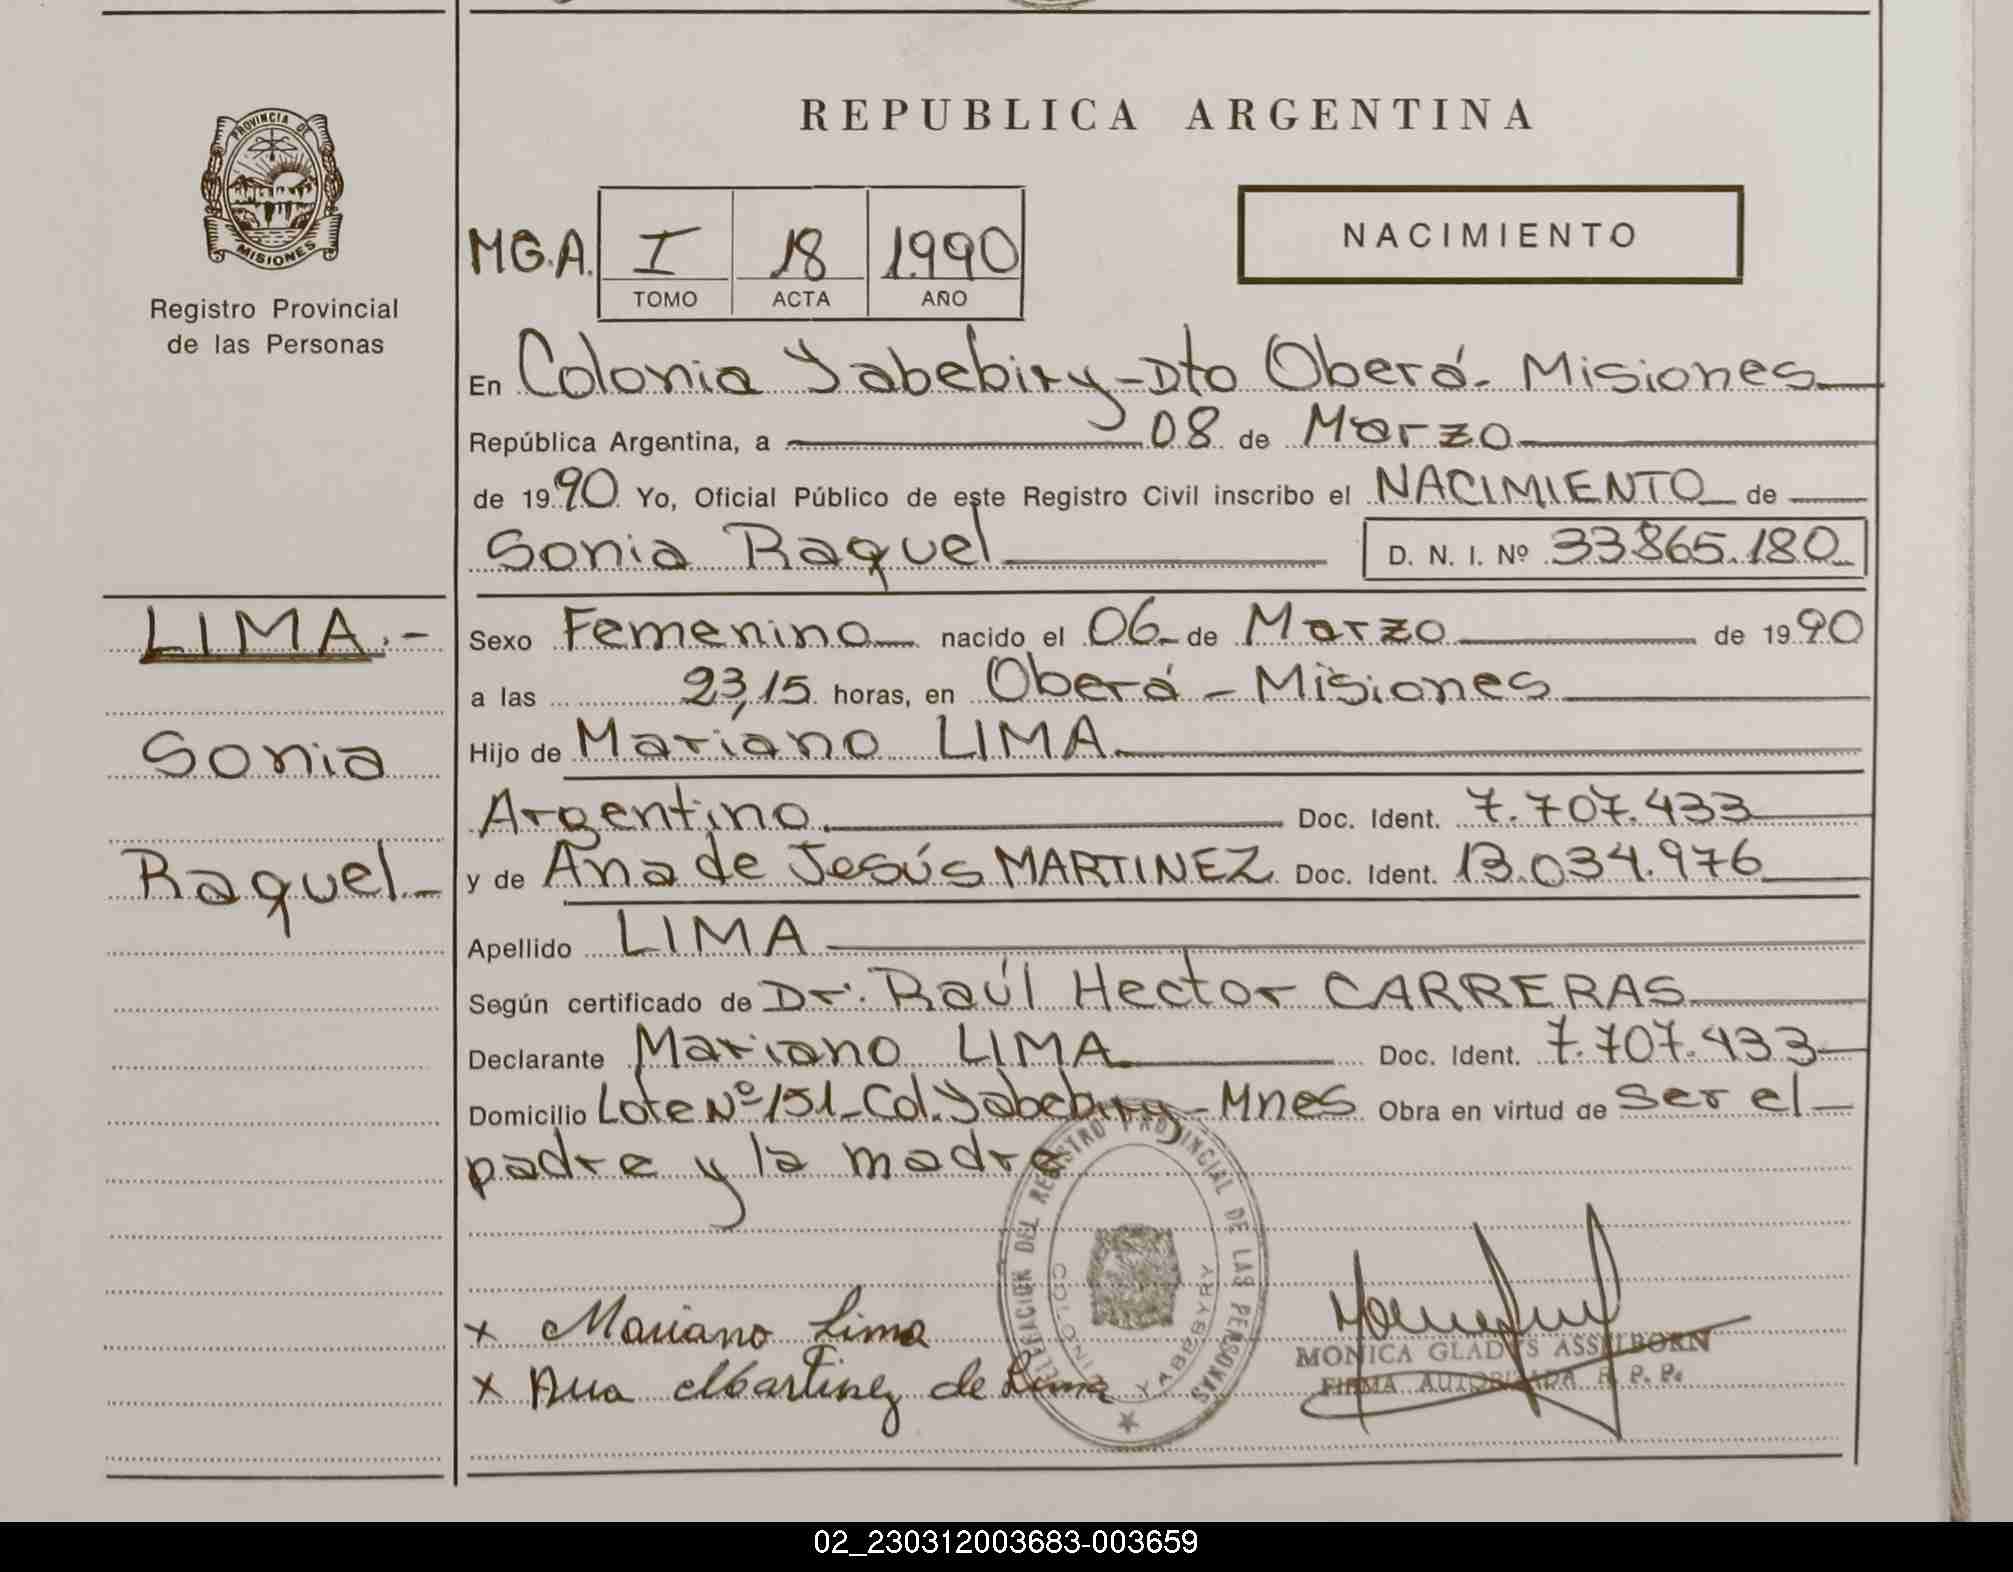 REPUBLICA ARGENTINA
PROVINCIA DE
MISIONES
Registro Provincial
de las Personas
NACIMIENTO
MG.A. I 18 1.990
TOMO ACTA AÑO
En Colonia Yabebiry - Dto Oberá - Misiones
República Argentina, a 08 de Marzo
de 1990 Yo, Oficial Público de este Registro Civil inscribo el NACIMIENTO de
Sonia Raquel D. N. I. Nº 33.865.180
LIMA.-
Sonia
Raquel -
Sexo Femenino nacido el 06 de Marzo de 1990
a las 23,15 horas, en Oberá - Misiones
Hijo de Mariano LIMA
Argentino Doc. Ident. 7.707.433
y de Ana de Jesús MARTINEZ Doc. Ident. 13.034.976
Apellido LIMA
Según certificado de Dr. Raúl Hector CARRERAS
Declarante Mariano LIMA Doc. Ident. 7.707.433
Domicilio Lote Nº 151 - Col. Yabebiry - Mnes Obra en virtud de ser el
padre y la madre
DEL REGISTRO PROVINCIAL DE LAS PERSONAS
YABEBYRY
x Mariano Lima
x Ana Martinez de Lima
MONICA GLADYS ASSELBORN
FIRMA AUTORIZADA R. P. P.
02_230312003683-003659